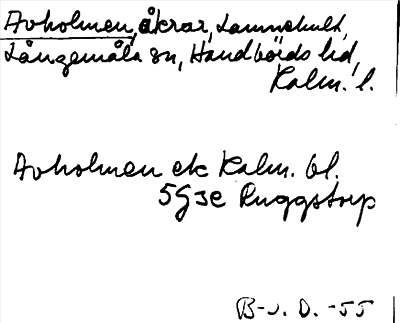 Avholmen, åkrar, Lamnehult,
Långemåla sn, Handbörds hd,
Kalm. l.
Avholmen ek Kalm. bl.
5G5e Ruggstorp
B-J. D. -55